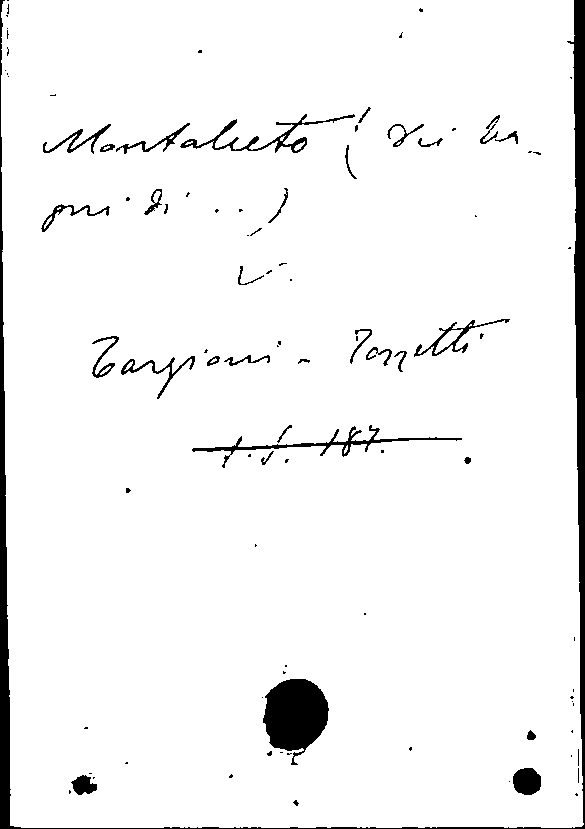 Montalceto (Dei ba-
gni di ...)
V.
Targioni - Tozzetti
1. S. 187.